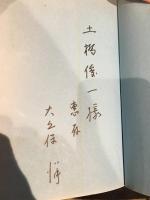 土橋俊一様
恵存
大久保